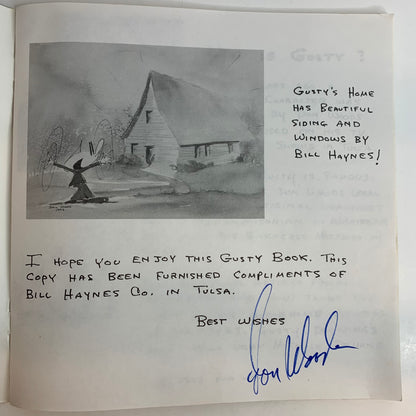 Gusty's Home
has beautiful
siding and
windows by
Bill Haynes!
I hope you enjoy this Gusty Book. This
copy has been furnished compliments of
Bill Haynes Co. in Tulsa.
Best Wishes
Don Woods